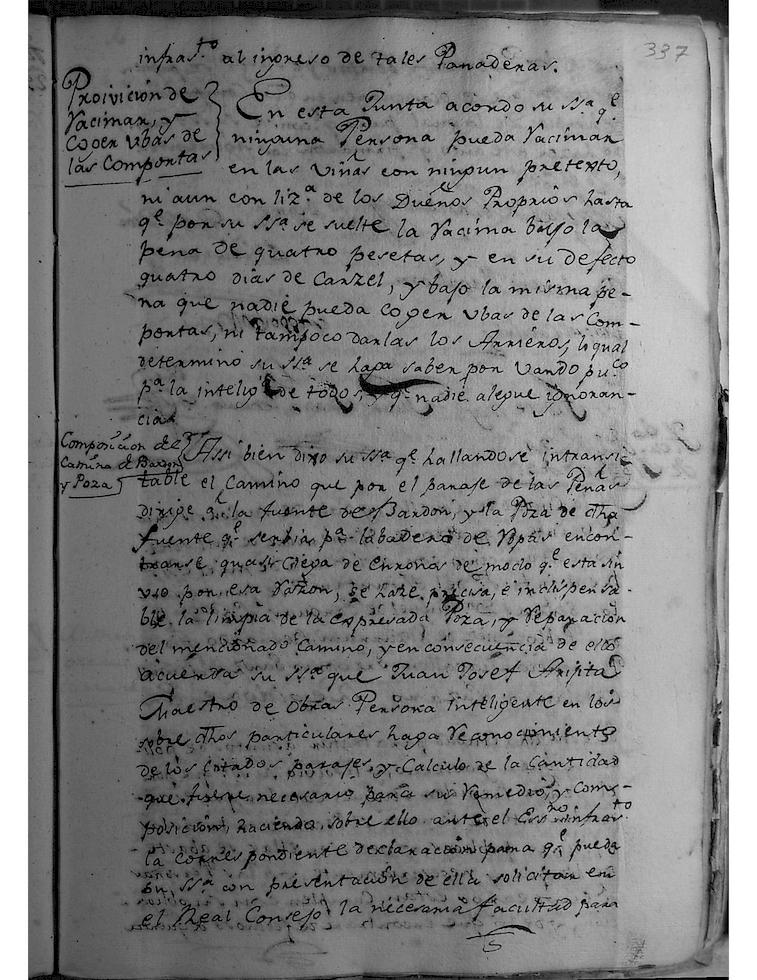 337
infras.to al ingreso de tales Panaderas.
Proivición de
Racimar, y
Coger ubas de
las Comportas
En esta Junta acordo su SSa. qe.
ninguna Persona pueda Racimar
en las viñas con ningun pretexto,
ni aun con liza. de los Dueños Proprios hasta
qe. por su SSa. se suelte la Racima bajo la
pena de quatro pesetas, y en su defecto
quatro dias de Carzel, y bajo la misma pe-
na que nadie pueda coger ubas de las Com-
portas, ni tampoco darlas los Arrieros, lo qual
determinó su SSa. se haga saber por vando puco.
pa. la intelig.a de todos, y qe. nadie alegue ignoran-
cia.
Composicion del
Camino de Bardon
y Poza
Assi bien dixo su SSa. qe. hallandose intransi-
table el Camino que por el paraje de las Peñas
dirige a la fuente de Bardon, y la Poza de dha
fuente qe. serbia pa. labadero de Ropas encon-
trarse quasi ciega de modo qe. esta sin
uso por esa Razon, se haze precisa, e indispensa-
ble la limpia de la expresada Poza, y Reparacion
del mencionado Camino, y en consecuencia de ello
acuerda su SSa. que Juan Josef Arizita
Maestro de Obras Persona inteligente en los
sobre dhos particulares haga Reconocimiento
de los citados parajes, y Calculo de la Cantidad
que fuere necesario para su Remedio, y Com-
posicion, haciendo sobre ello ante el Essno. infras.to
la correspondiente declaracion para qe. pueda
su SSa. con presentacion de ella solicitar en
el Real Consejo la necesaria facultad para